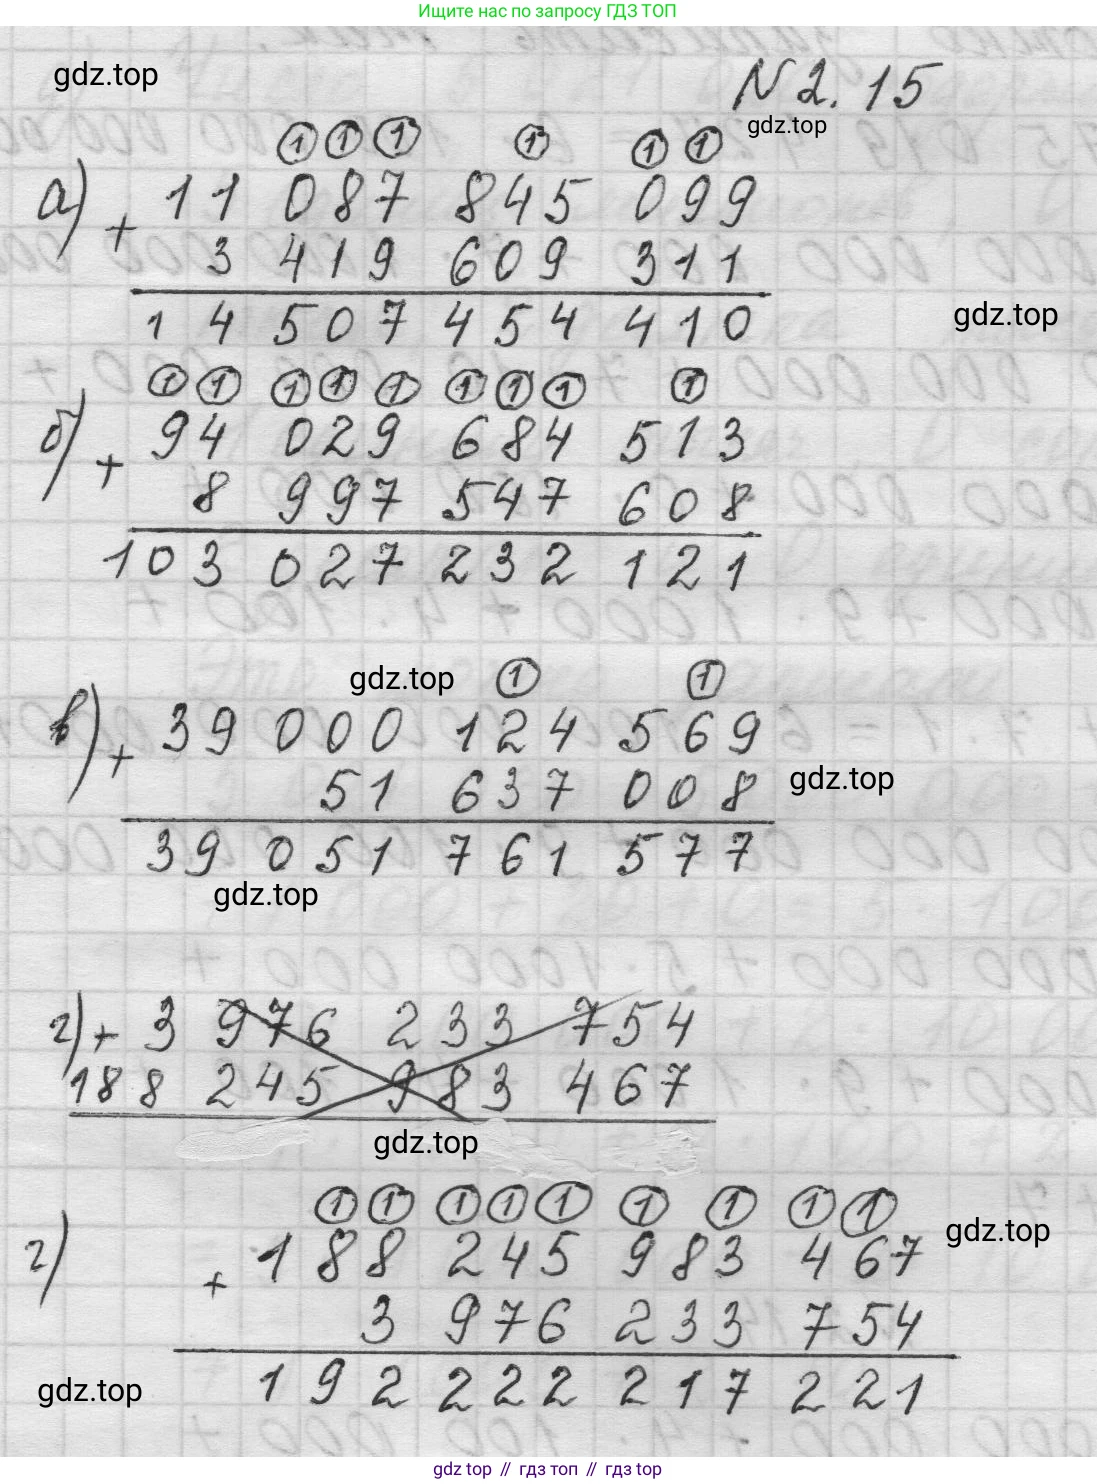 Ищите нас по запросу ГДЗ ТОП
gdz.top
N 2.15
gdz.top
1 1 1 1 1 1
а) + 11 087 845 099
3 419 609 311
14 507 454 410
gdz.top
1 1 1 1 1 1 1 1 1
б) + 94 029 684 513
8 997 547 608
103 027 232 121
gdz.top
1 1
в) + 39 000 124 569
gdz.top
51 637 008
39 051 761 577
gdz.top
г) + 3 976 233 754
188 245 983 467
gdz.top
1 1 1 1 1 1 1 1 1
gdz.top
г) + 188 245 983 467
3 976 233 754
192 222 217 221
gdz.top
gdz top // гдз топ // gdz top